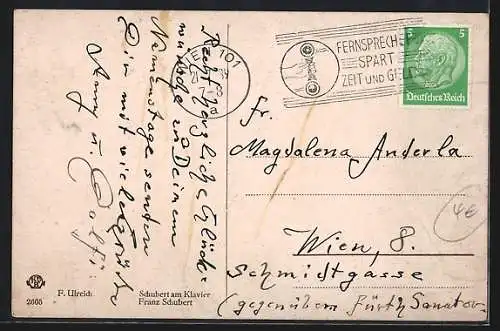 Recht herzliche Glück-
wünsche zu Deinem
Namenstage senden
Dir mit vielen Grüßen
Anny u.
101
FERNSPRECHE
SPART
ZEIT und GE
5 5
Deutsches Reich
Fr.
Magdalena Anderla
Wien, 8.
Schmidtgasse
(gegenüber Fürth Sanator.
4€
F. Ulreich
Schubert am Klavier
Franz Schubert
2605